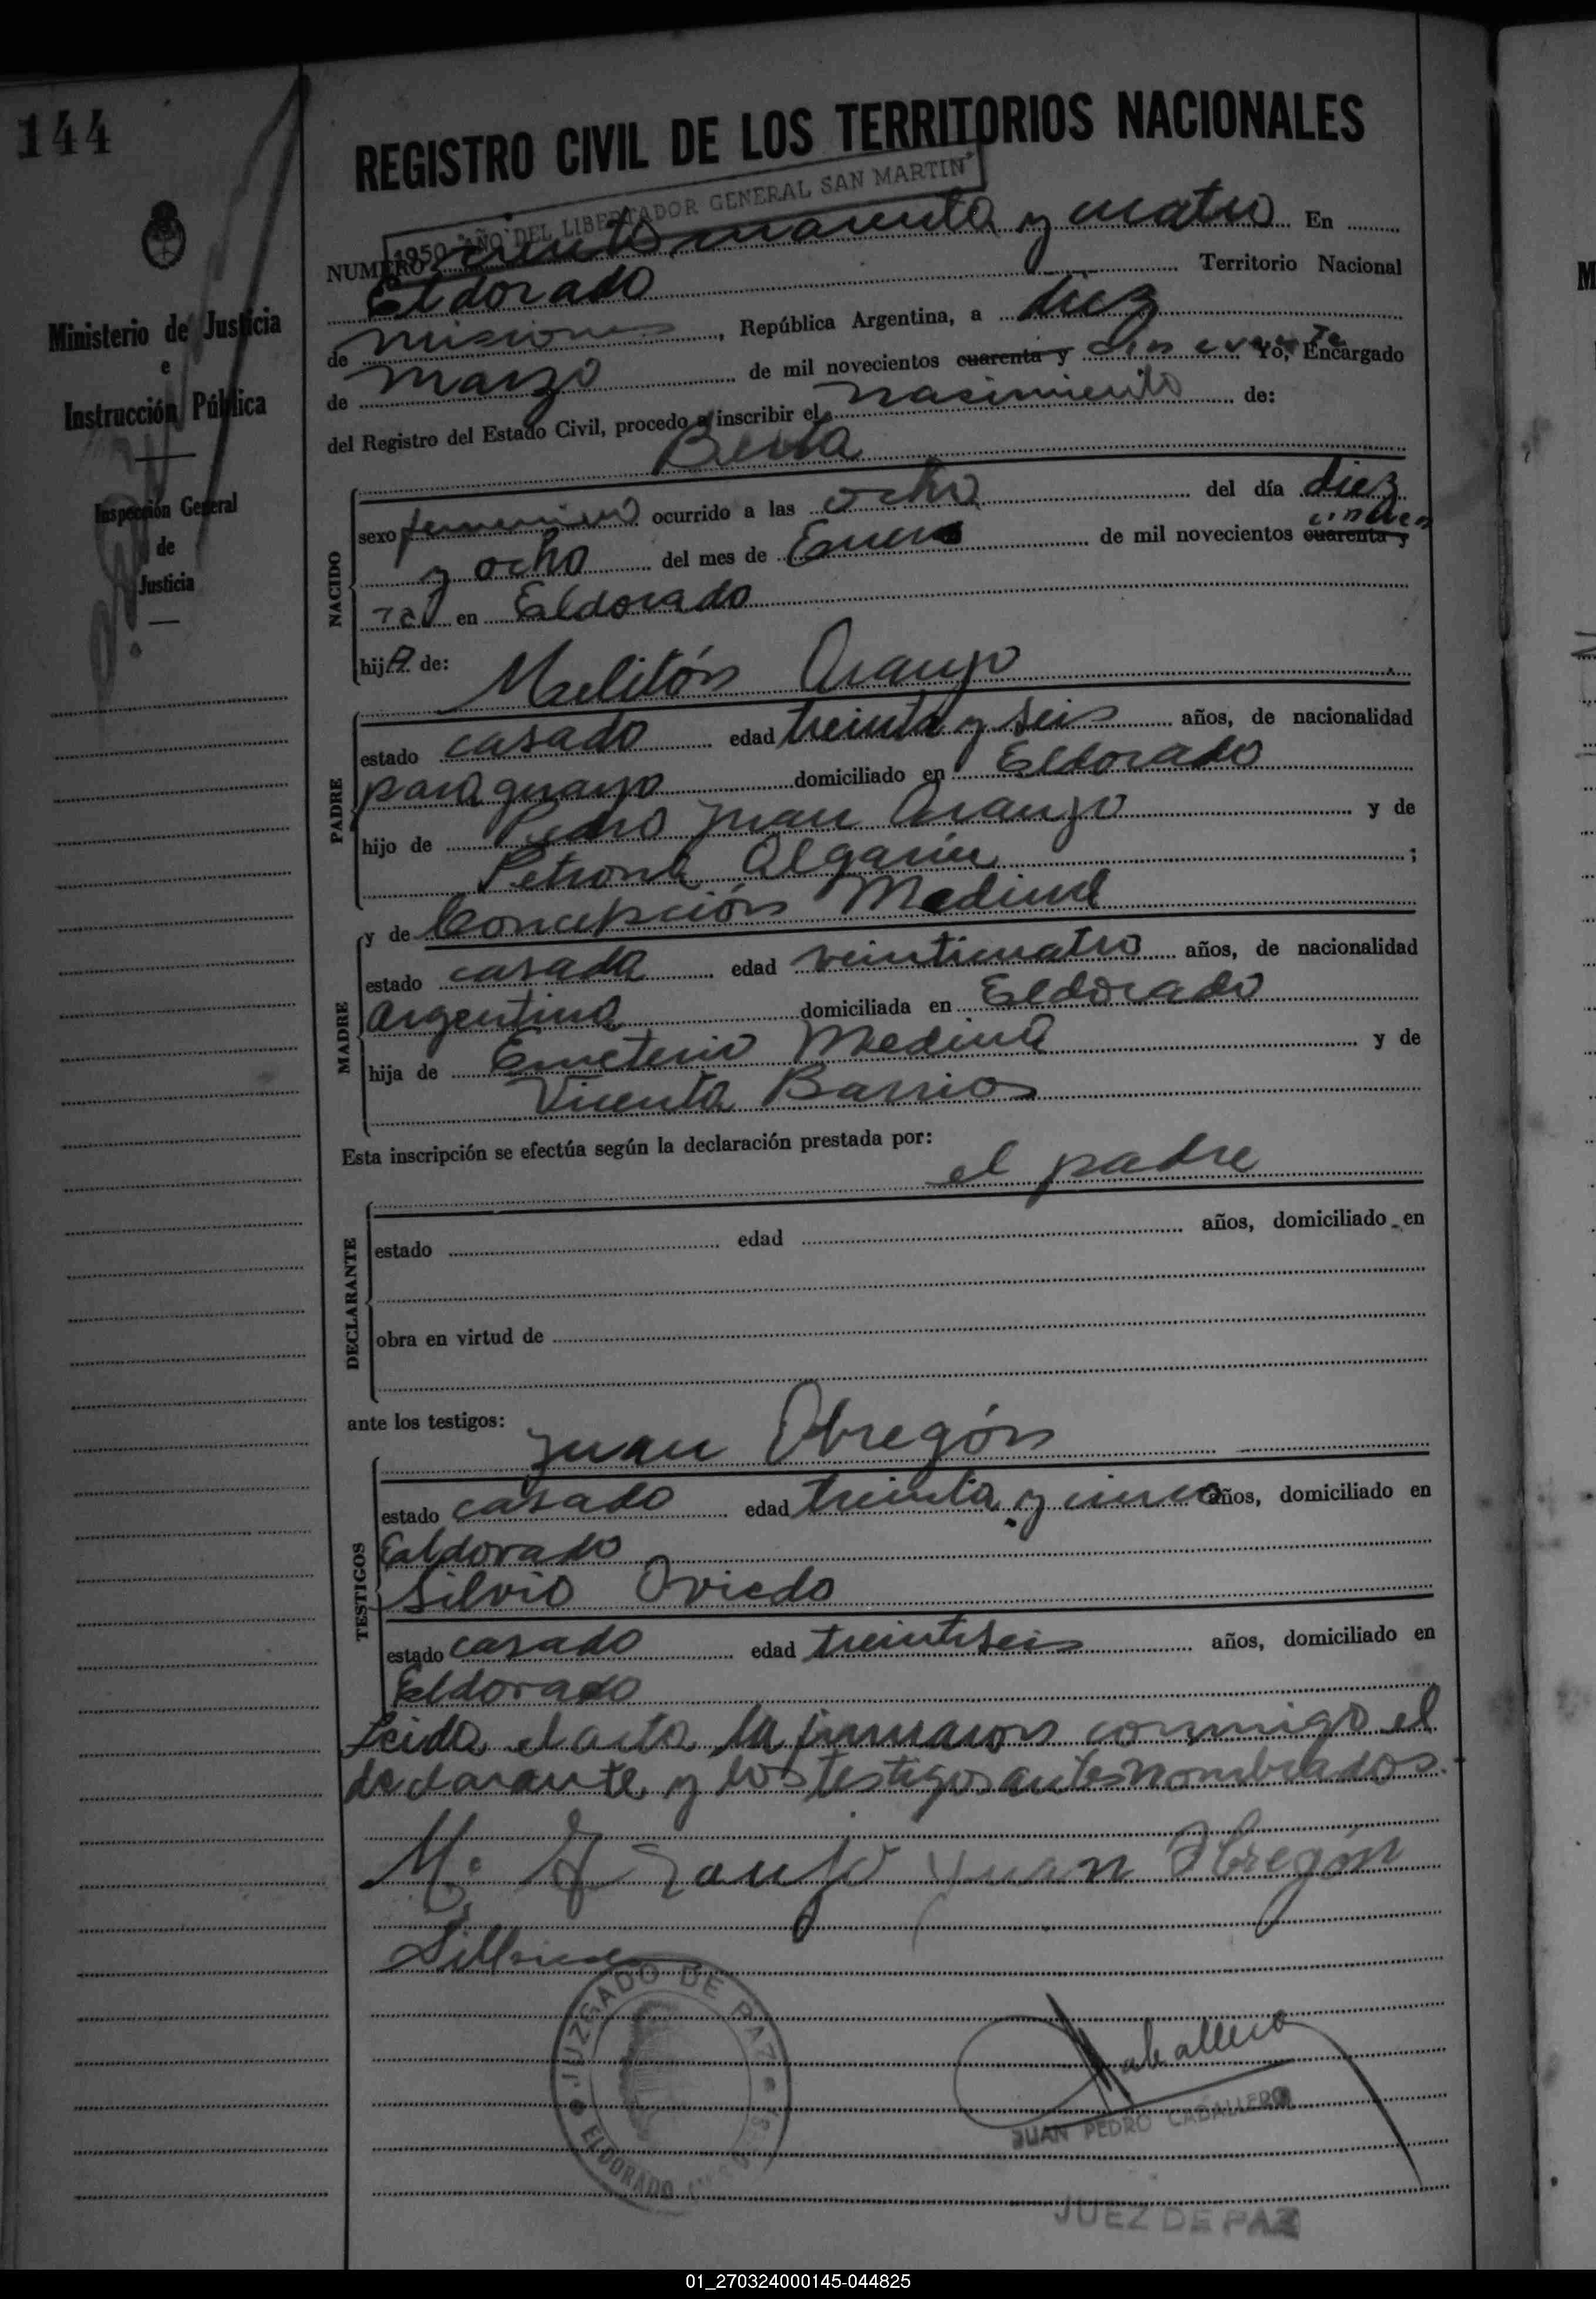 144
REGISTRO CIVIL DE LOS TERRITORIOS NACIONALES
1950 "AÑO DEL LIBERTADOR GENERAL SAN MARTIN"
NUMERO ciento cuarenta y cuatro En
Eldorado Territorio Nacional
de misiones, República Argentina, a diez
de marzo de mil novecientos cuarenta y cincuenta Yo, Encargado
del Registro del Estado Civil, procedo a inscribir el nasimiento de:
Berta
Ministerio de Justicia
e
Instrucción Pública
Inspección General
de
Justicia
NACIDO
sexo femenino ocurrido a las ocho del día diez
y ocho del mes de Enero de mil novecientos cuarenta y cincuen
ta en Eldorado
hijA de: Melitón Araujo
PADRE
estado casado edad treinta y seis años, de nacionalidad
paraguayo domiciliado en Eldorado
hijo de Pedro Juan Araujo y de
Petrona Algarin ;
y de Concepción Medina
MADRE
estado casada edad veinticuatro años, de nacionalidad
argentina domiciliada en Eldorado
hija de Emeterio Medina y de
Vicenta Barrios
Esta inscripción se efectúa según la declaración prestada por:
el padre
DECLARANTE
estado edad años, domiciliado en
obra en virtud de
ante los testigos: Juan Obregón
TESTIGOS
estado casado edad treinta y cinco años, domiciliado en
Eldorado
Silvio Oviedo
estado casado edad treintiseis años, domiciliado en
Eldorado
Leida el acta la firmaron conmigo el
declarante y los testigos antes nombrados.
M. Araujo Juan Obregón
JUZGADO DE PAZ
ELDORADO
Caballero
JUAN PEDRO CABALLERO
JUEZ DE PAZ
01_270324000145-044825